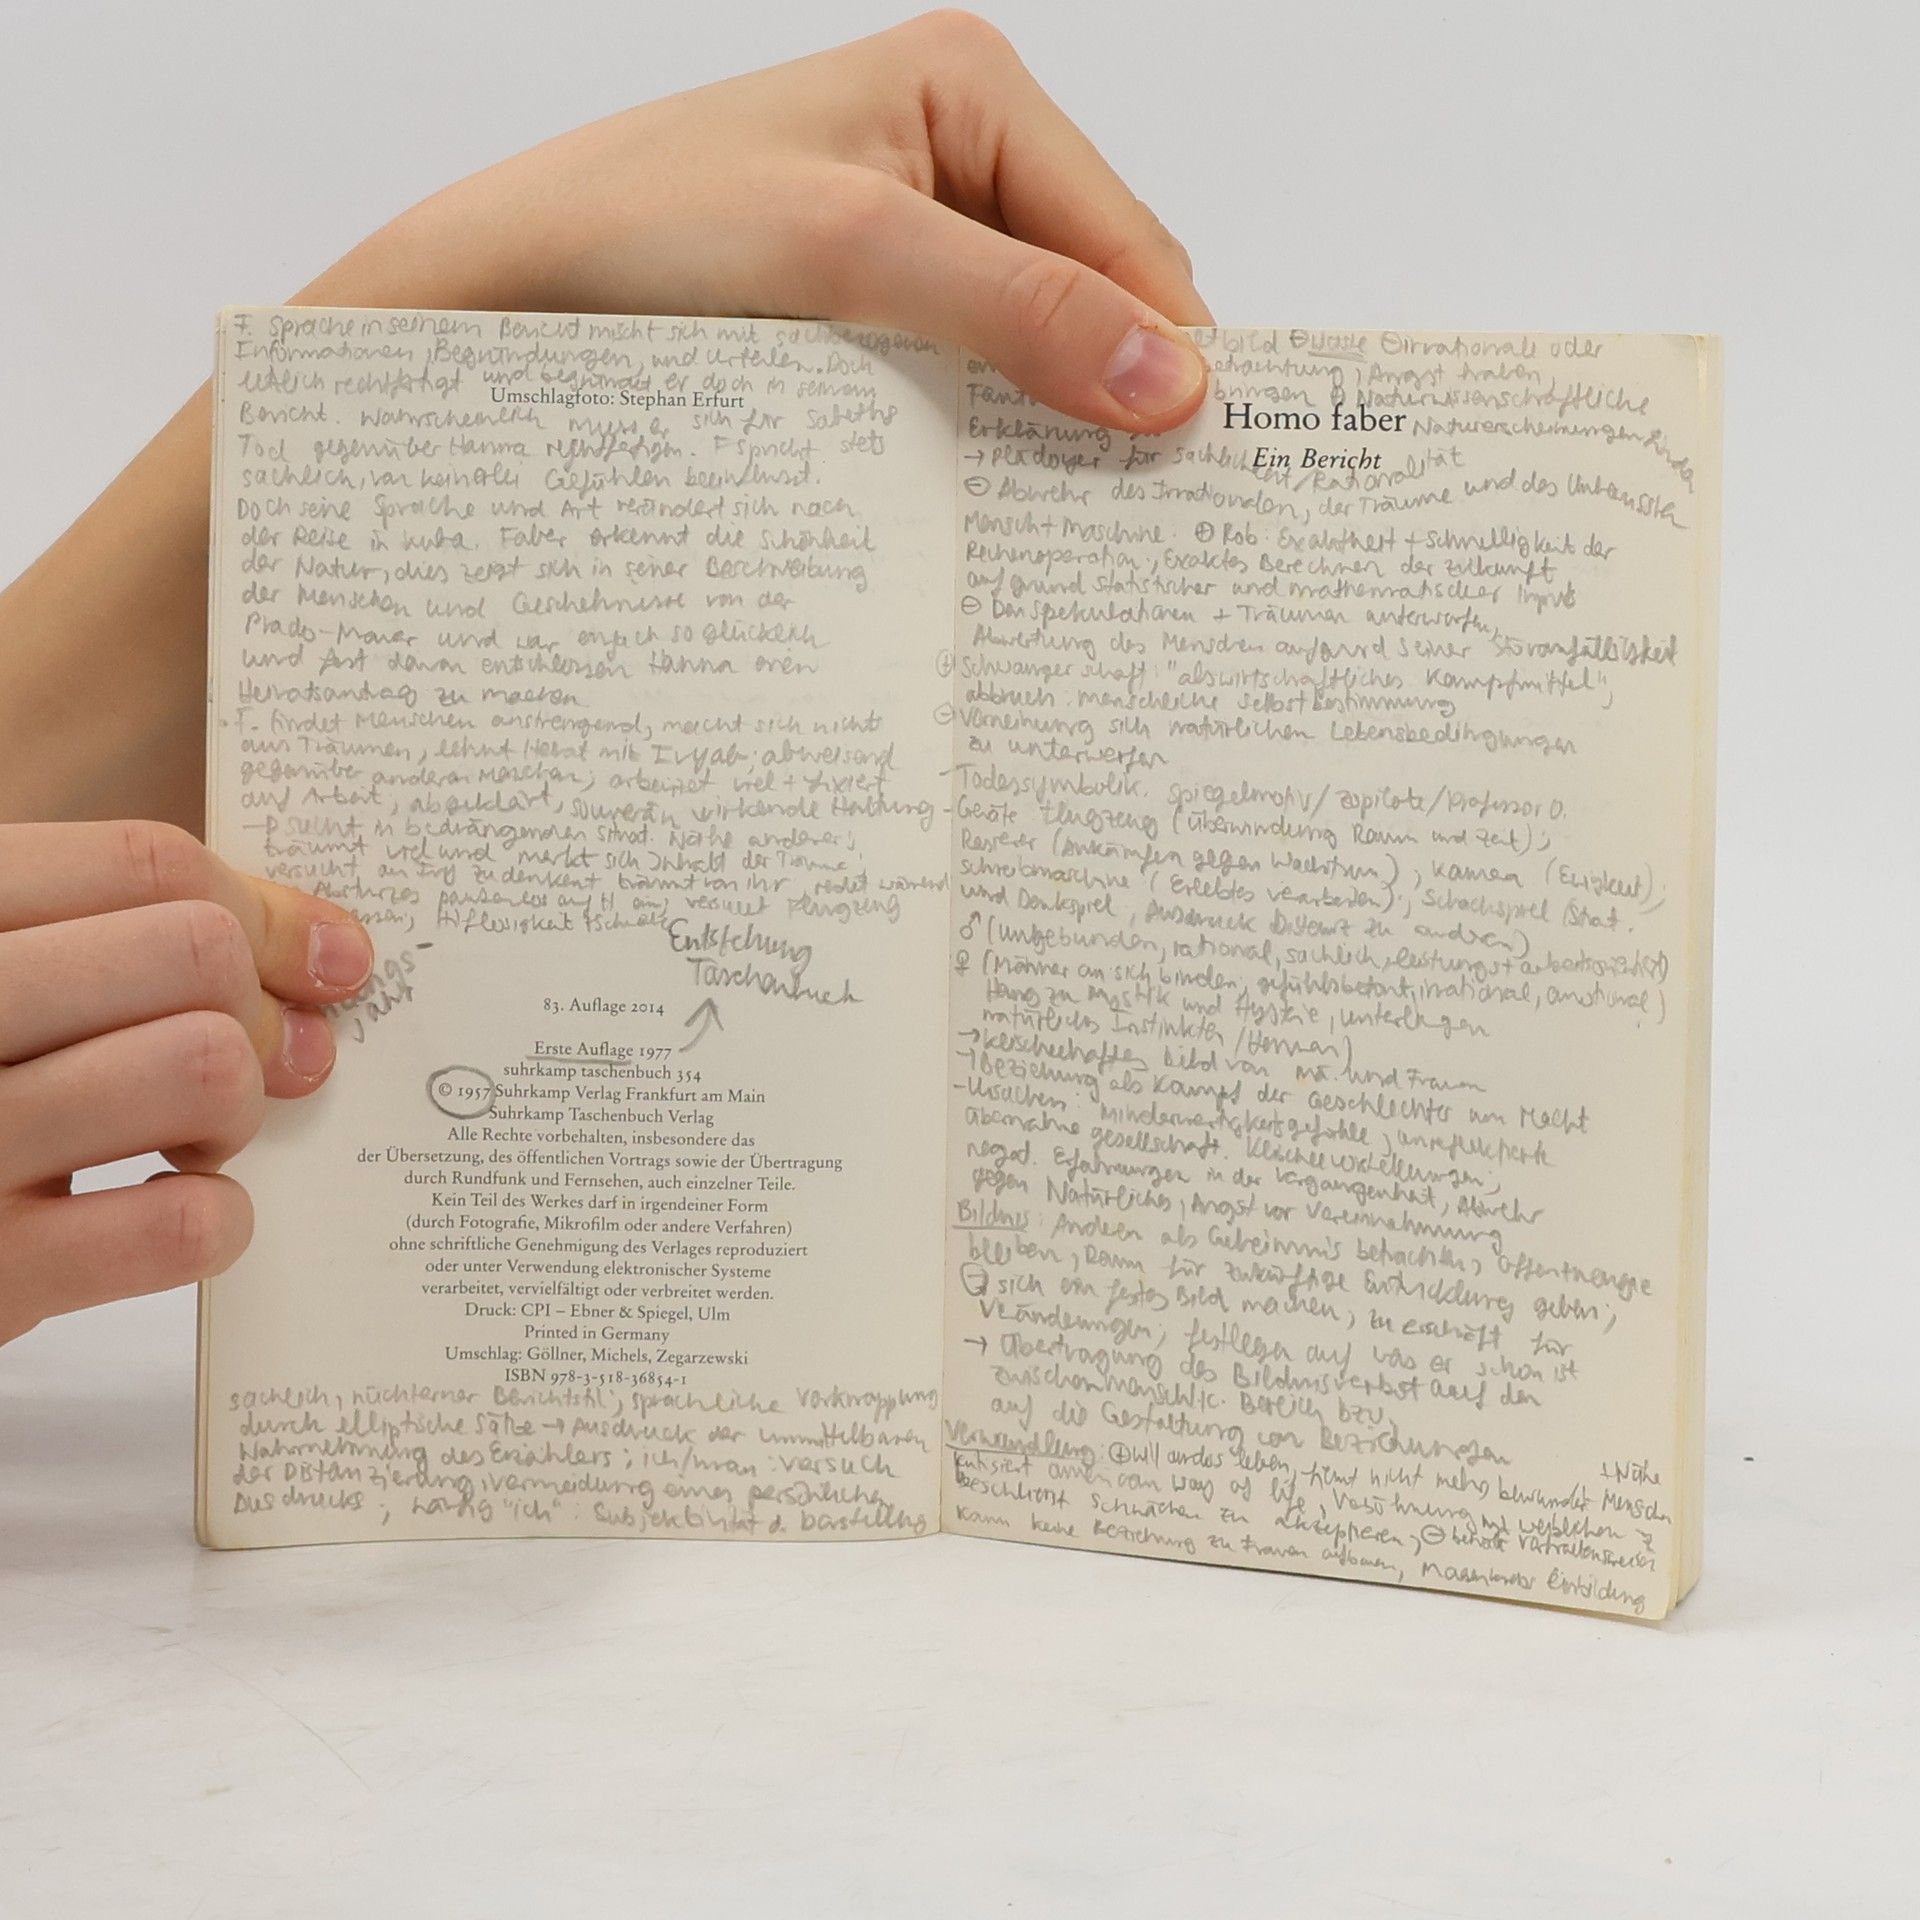 F. Sprache in seinem Bericht mischt sich mit sachbezogenen
Informationen, Begründungen, und Urteilen. Doch
letzlich rechtfertigt und begründet er doch in seinem
Umschlagfoto: Stephan Erfurt
Bericht. Wahrscheinlich muss er sich für Sabeths
Tod gegenüber Hanna rechtfertigen. F spricht stets
sachlich, von keinerlei Gefühlen beeinflusst.
Doch seine Sprache und Art verändert sich nach
der Reise in Kuba. Faber erkennt die Schönheit
der Natur, dies zeigt sich in seiner Beschreibung
der Menschen und Geschehnisse von der
Prado-Mauer und war einfach so glücklich
und fest davon entschlossen Hanna einen
Heiratsantrag zu machen
F. findet Menschen anstrengend, macht sich nichts
aus Träumen, lehnt Heirat mit Ivy ab; abweisend
gegenüber anderen Menschen; arbeitet viel + fixiert
auf Arbeit; abgeklärt, souverän wirkende Haltung
sucht in bedrängenden Situat. Nähe anderer;
träumt viel und merkt sich Inhalt der Träume;
versucht an Ivy zu denken, träumt von ihr, redet während
Absturzes pausenlos auf H ein; versucht Flugzeug
Hilflosigkeit
Entstehung
Taschenbuch
jahr
83. Auflage 2014
Erste Auflage 1977
suhrkamp taschenbuch 354
© 1957 Suhrkamp Verlag Frankfurt am Main
Suhrkamp Taschenbuch Verlag
Alle Rechte vorbehalten, insbesondere das
der Übersetzung, des öffentlichen Vortrags sowie der Übertragung
durch Rundfunk und Fernsehen, auch einzelner Teile.
Kein Teil des Werkes darf in irgendeiner Form
(durch Fotografie, Mikrofilm oder andere Verfahren)
ohne schriftliche Genehmigung des Verlages reproduziert
oder unter Verwendung elektronischer Systeme
verarbeitet, vervielfältigt oder verbreitet werden.
Druck: CPI – Ebner & Spiegel, Ulm
Printed in Germany
Umschlag: Göllner, Michels, Zegarzewski
ISBN 978-3-518-36854-1
sachlich, nüchterner Berichtstil; sprachliche Verknappung
durch elliptische Sätze → Ausdruck der unmittelbaren
Wahrnehmung des Erzählers; ich/man: Versuch
der Distanzierung, Vermeidung eines persönlichen
Ausdrucks; häufig "ich": Subjektivität d. Darstellung
⊖ irrationale oder
Angst haben,
bringen ⊕ Naturwissenschaftliche
Homo faber
Erklärung
Naturerscheinungen finden
Ein Bericht
→ Plädoyer für Sachlichkeit/Rationalität
⊖ Abwehr des Irrationalen, der Träume und des Unbewussten
Mensch + Maschine. ⊕ Rob: Exaktheit + Schnelligkeit der
Rechenoperation; Exaktes Berechnen der Zukunft
aufgrund statistischer und mathematischer Inputs
⊖ Den Spekulationen + Träumen unterworfen,
Abwertung des Menschen aufgrund seiner Störanfälligkeit
⊕ Schwangerschaft: "als wirtschaftliches Kampfmittel";
abbruch: menschliche Selbstbestimmung
⊖ Verneinung sich natürlichen Lebensbedingungen
zu unterwerfen
- Todessymbolik: Spiegelmotiv/Zopilote/Professor O.
- Geräte: Flugzeug (Überwindung Raum und Zeit);
Rasierer (Ankämpfen gegen Wachstum); Kamera (Ewigkeit);
Schreibmaschine (Erlebtes verarbeiten); Schachspiel (Strat.
und Denkspiel, Ausdruck Distanz zu anderen)
♂ (ungebunden, rational, sachlich, leistungs + arbeitsorientiert)
♀ (Männer an sich binden, gefühlsbetont, irrational, emotional)
Hang zu Mystik und Hysterie, unterliegen
natürlichen Instinkten/
→ klischeehaftes Bild von Mä. und Frauen
→ Beziehung als Kampf der Geschlechter um Macht
- Ursachen: Minderwertigkeitsgefühle, unreflektierte
Übernahme gesellschaft. Klischeevorstellungen;
negat. Erfahrungen in der Vergangenheit, Abwehr
gegen Natürliches, Angst vor Vereinnahmung
Bildnis: Anderen als Geheimnis betrachten,
bleiben, Raum für zukünftige Entwicklung geben;
⊖ sich ein festes Bild machen,
Veränderungen; festlegen auf was er schon ist
→ Übertragung des Bildnisverbot auf den
zwischenmenschlic. Bereich bzw.
auf die Gestaltung von Beziehungen
Verwandlung: ⊕ will anders leben, filmt nicht mehr, bewundert Menschen + Nähe
kritisiert american way of life, Versöhnung mit weiblichen
beschliesst Schwächen zu akzeptieren, ⊖
kann keine Beziehung zu Frauen aufbauen, Magenkrebs Einbildung